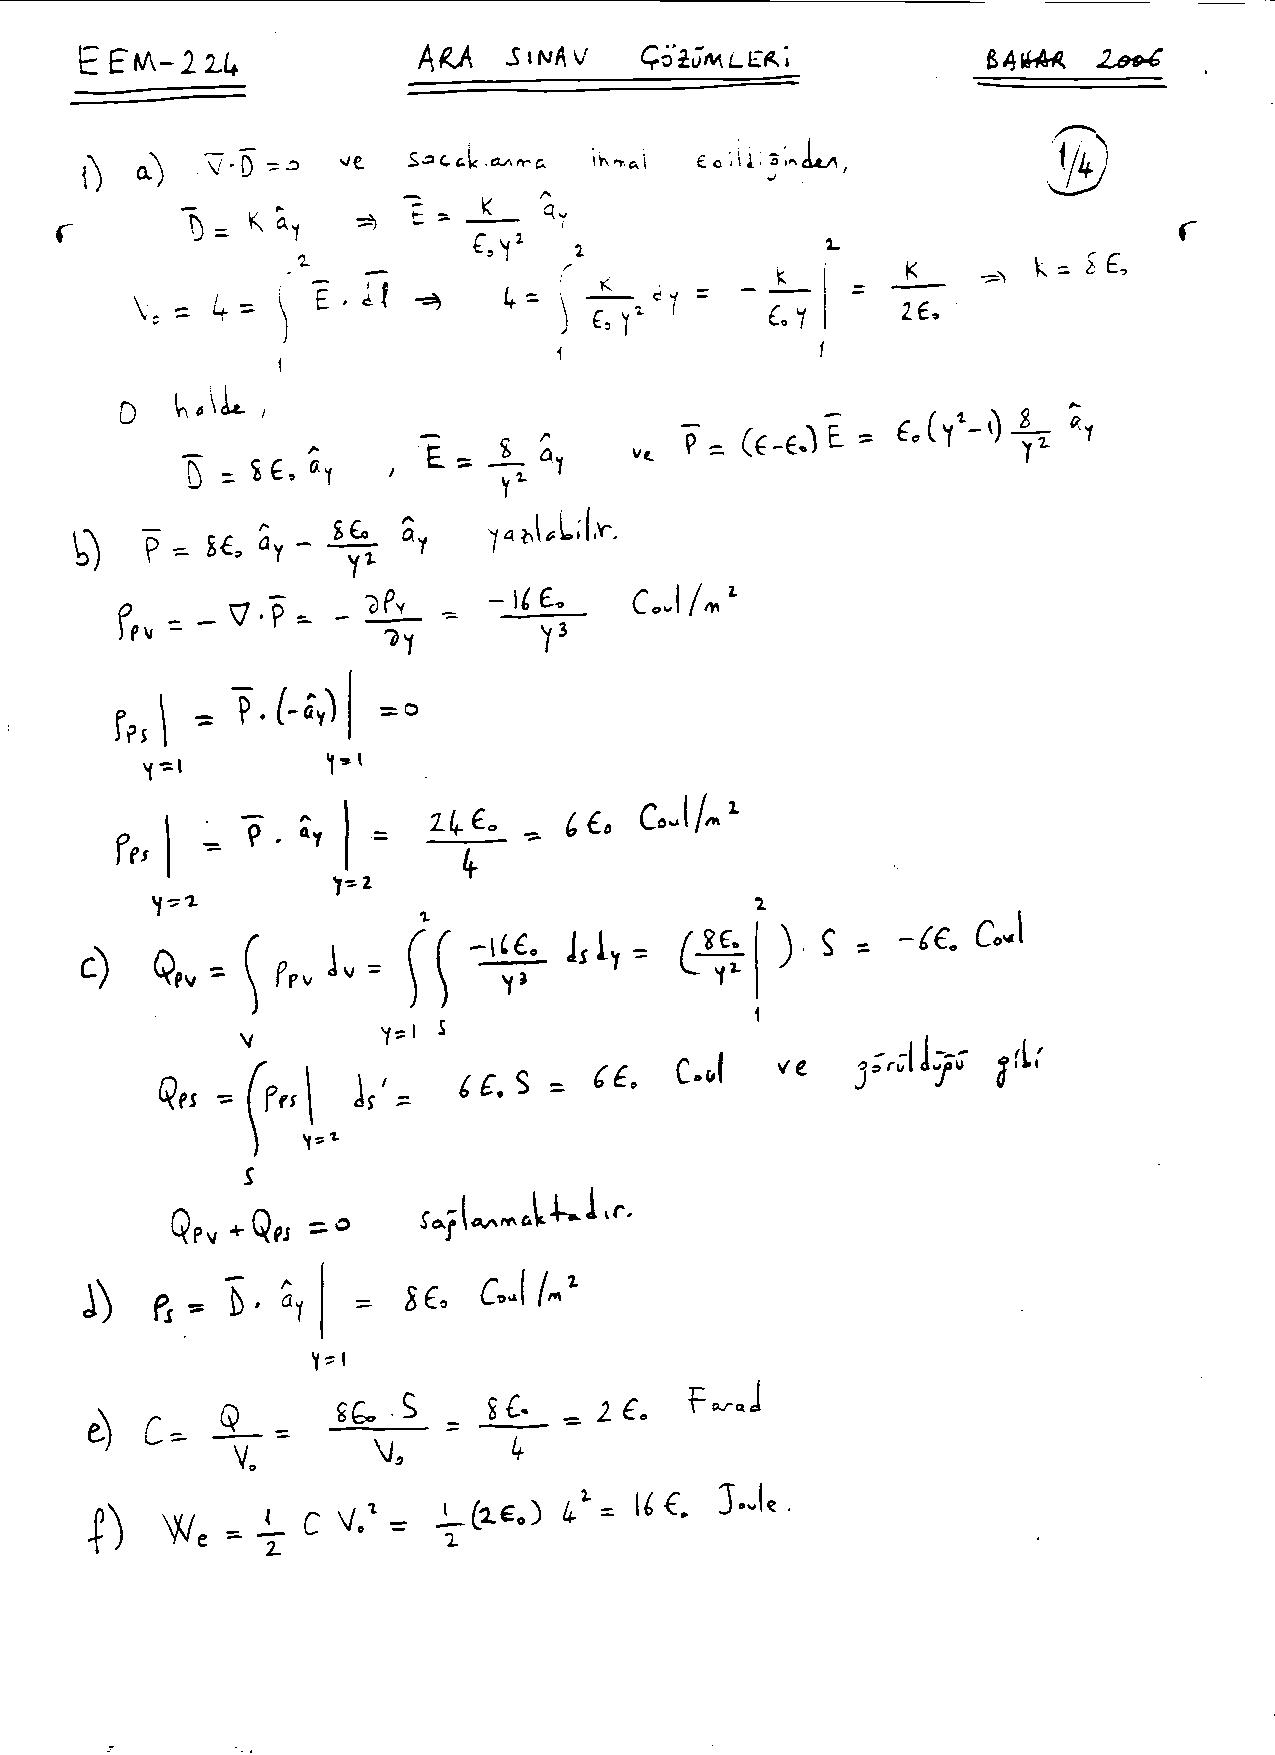 EEM-224 ARA SINAV ÇÖZÜMLERİ BAHAR 2006
1/4
1) a) ∇·D̄=0 ve saçaklanma ihmal edildiğinden,
D̄ = K â_y ⇒ Ē = K/(ε₀y²) â_y
V₀ = 4 = ∫₁² Ē·dl̄ ⇒ 4 = ∫₁² K/(ε₀y²) dy = -K/(ε₀y) |₁² = K/(2ε₀) ⇒ k = 8ε₀
O halde,
D̄ = 8ε₀ â_y , Ē = 8/y² â_y ve P̄ = (ε-ε₀)Ē = ε₀(y²-1) 8/y² â_y
b) P̄ = 8ε₀ â_y - 8ε₀/y² â_y yazılabilir.
ρ_pv = -∇·P̄ = -∂P_y/∂y = -16ε₀/y³ Coul/m²
ρ_ps |_{y=1} = P̄·(-â_y) |_{y=1} = 0
ρ_ps |_{y=2} = P̄·â_y |_{y=2} = 24ε₀/4 = 6ε₀ Coul/m²
c) Q_pv = ∫_V ρ_pv dv = ∫_{y=1}^{2} ∫_S -16ε₀/y³ ds dy = (8ε₀/y² |₁²)·S = -6ε₀ Coul
Q_ps = ∫_S ρ_ps |_{y=2} ds' = 6ε₀S = 6ε₀ Coul ve görüldüğü gibi
Q_pv + Q_ps = 0 sağlanmaktadır.
d) ρ_s = D̄·â_y |_{y=1} = 8ε₀ Coul/m²
e) C = Q/V₀ = 8ε₀·S/V₀ = 8ε₀/4 = 2ε₀ Farad
f) W_e = 1/2 C V₀² = 1/2 (2ε₀) 4² = 16ε₀ Joule.